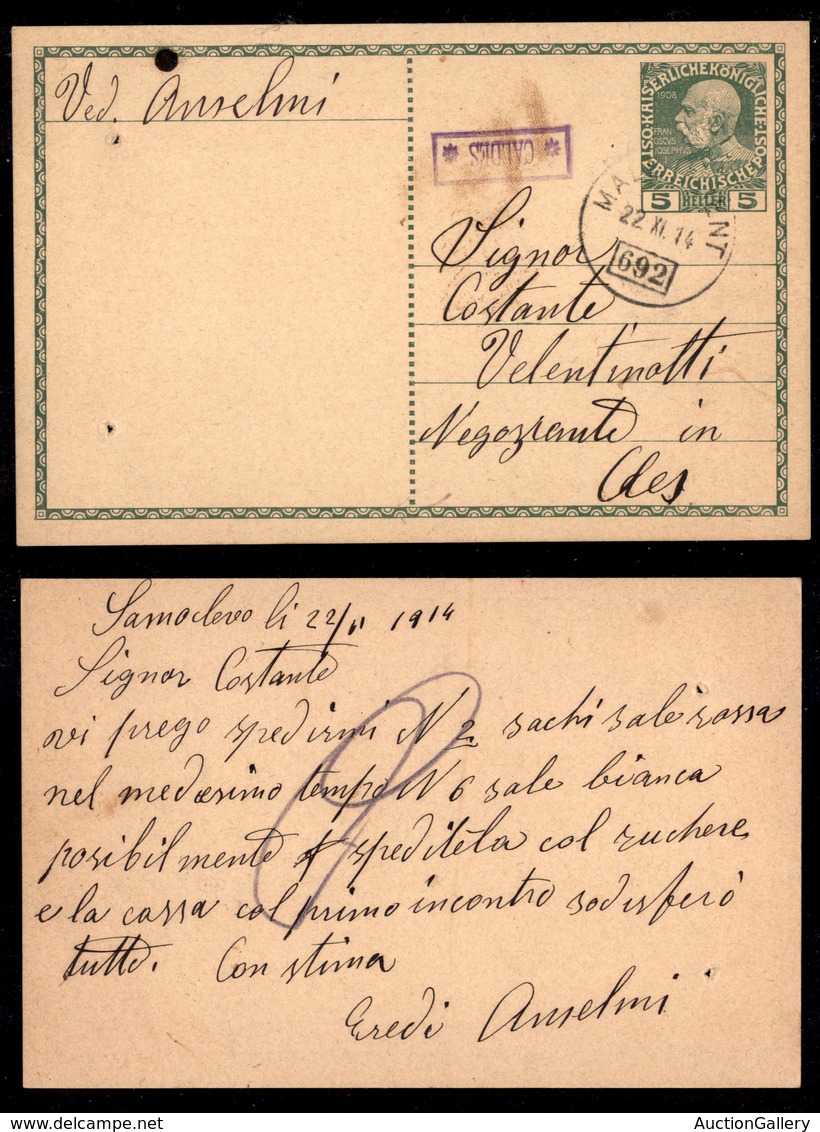 Ved. Anselmi
KAISERLICHE KÖNIGLICHE
1908
FRAN
CISCVS
IOSEPHVS
ÖSTERREICHISCHE POST
5 HELLER 5
* CALDES *
22 XI. 14
692
Signor
Costante
Velentinotti
Negoziante in
Cles
Samoclevo li 22/11 1914
Signor Costante
vi prego spedirmi N 2 sachi sale rossa
nel medesimo tempo N 6 sale bianca
posibilmente speditela col zuchere
e la cassa col primo incontro sodisferò
tutto. Con stima
Eredi Anselmi
AuctionGallery